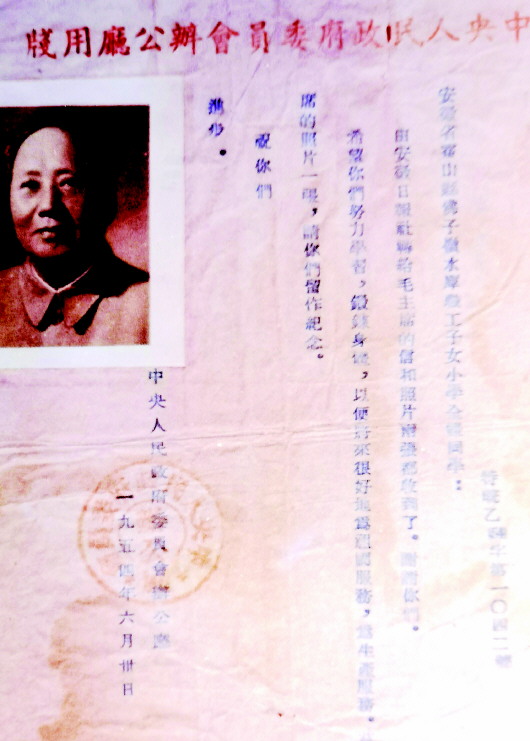 中央人民政府委員會辦公廳用牋
辦乙秘字第一〇四二號
安徽省霍山縣佛子嶺水庫職工子女小學全體同學：
由安徽日報社轉給毛主席的信和照片兩張都收到了。謝謝你們。
希望你們努力學習，鍛鍊身體，以便將來很好地為祖國服務，為生產服務。
席的照片一張，請你們留作紀念。
祝你們
進步。
中央人民政府委員會辦公廳
一九五四年六月卅日